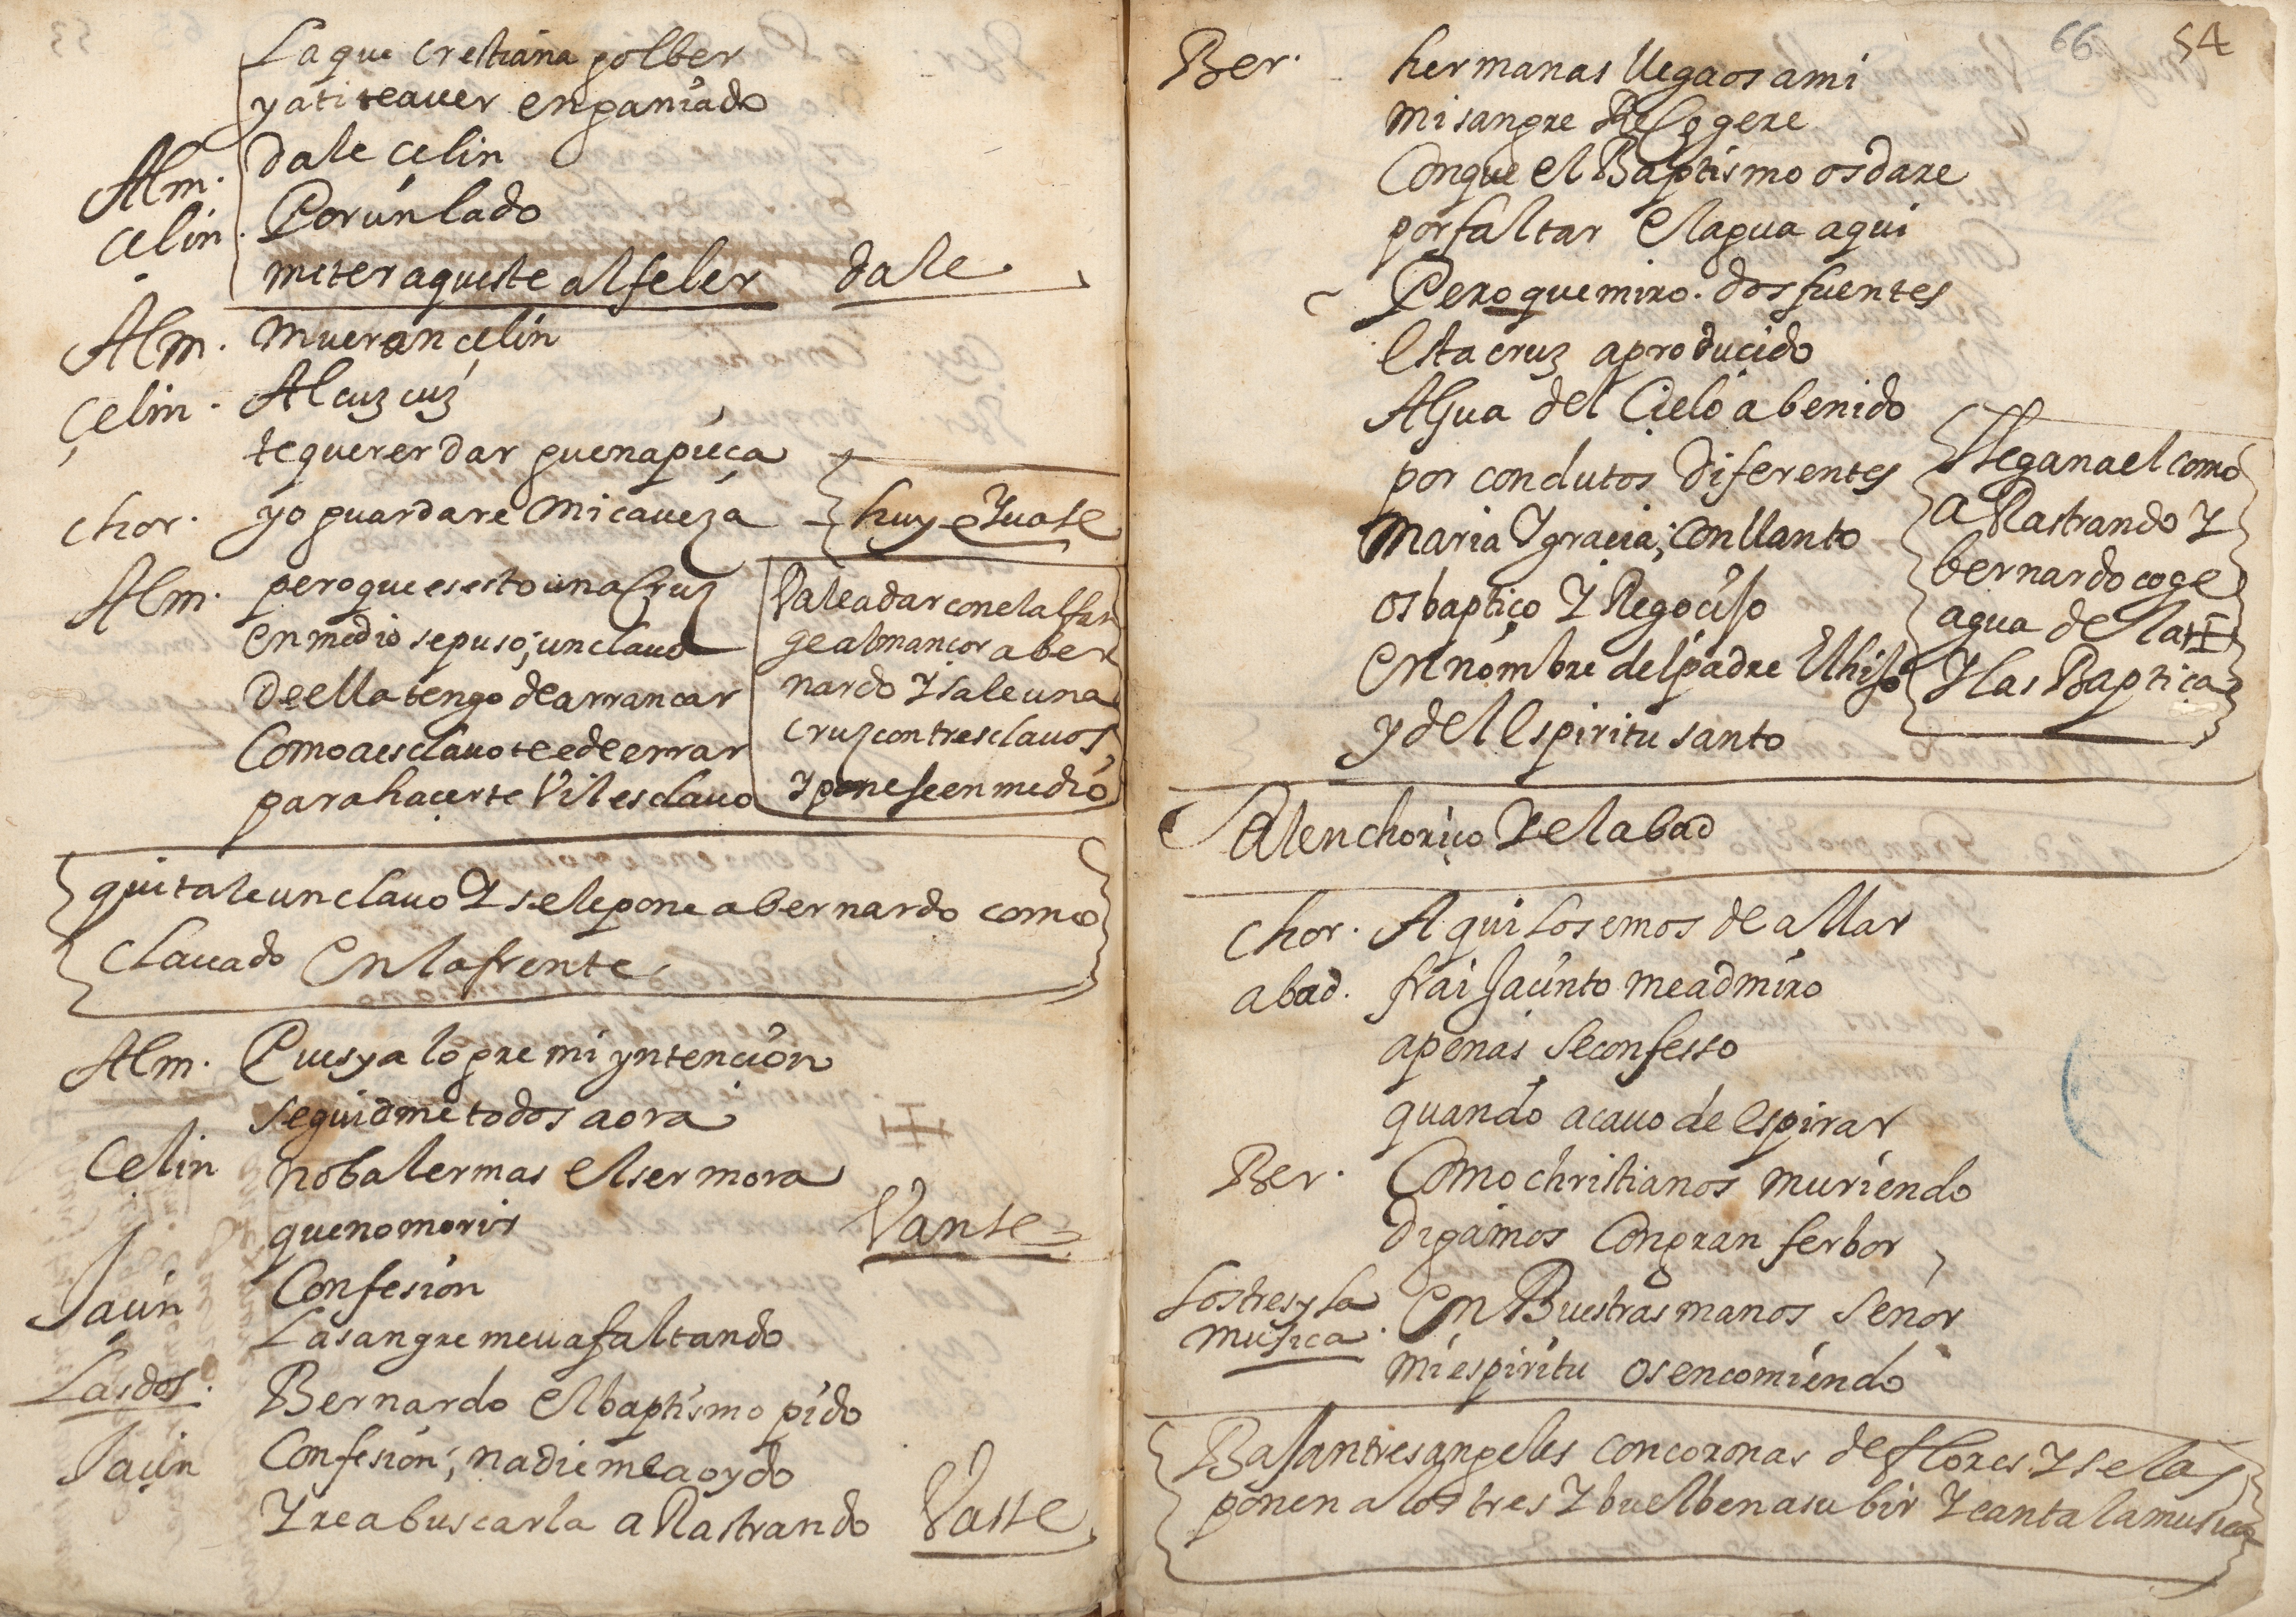 La que crestiana golber
y ati te auer enganiado
Alm. dale çelin
Çelin. Por ún lado
meter aqueste alfeler dale.
Alm. mueran çelin
Çelin. Alcuz cuz
te querer dar guena pieça
chor. yo guardare mi caueza huye Yuase
Alm. pero que es esto una Cruz
en medio se puso; un clauo
de ella tengo de arrancar
Como a esclauo te e de errar
para haçerte Vil esclauo
Vale a dar con el alfan
ge almançor a ber
nardo Y sale una
cruz con tres clauos,
Y ponese en medio
quitale un clauo Y se le pone a bernardo como
clauado en la frente,
Alm. Pues ya logre mi yntencion
seguidme todos aora
Çelin no baler mas el ser mora
que no morir Vanse
Jaçin Confesion
La sangre me ua faltando
Las dos. Bernardo el baptismo pido
Jaçin Confesion; nadie me a oydo
Yre a buscarla a Rastrando Vasse
66 54
Ber. hermanas llegaos a mi
mi sangre Recogere
Con que el Baptismo os dare
por faltar el agua aqui
Pero que miro. dos fuentes
esta cruz a producido
Agua del Cielo a benido
por condutos diferentes
Maria Y graçia; con llanto
os baptiço Y Regoçijo
en nombre del padre El hijo
y del espiritu santo
Llegan a el como
a Rastrando Y
bernardo coge
agua de la ++
Y las Baptiça
Salen choriço Y el abad
chor. Aqui los emos de allar
abad. frai Jaçinto me admiro
apenas se confesso
quando acauo de espirar
Ber. Como christianos muriendo
digamos Con gran ferbor,
Los tres y la musica. En Buestras manos señor
mi espiritu os encomiendo
Bajan tres angeles con coronas de flores Y se las
ponen a los tres Y buelben a subir Y canta la musica